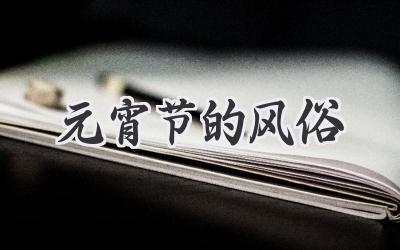 元宵节的风俗